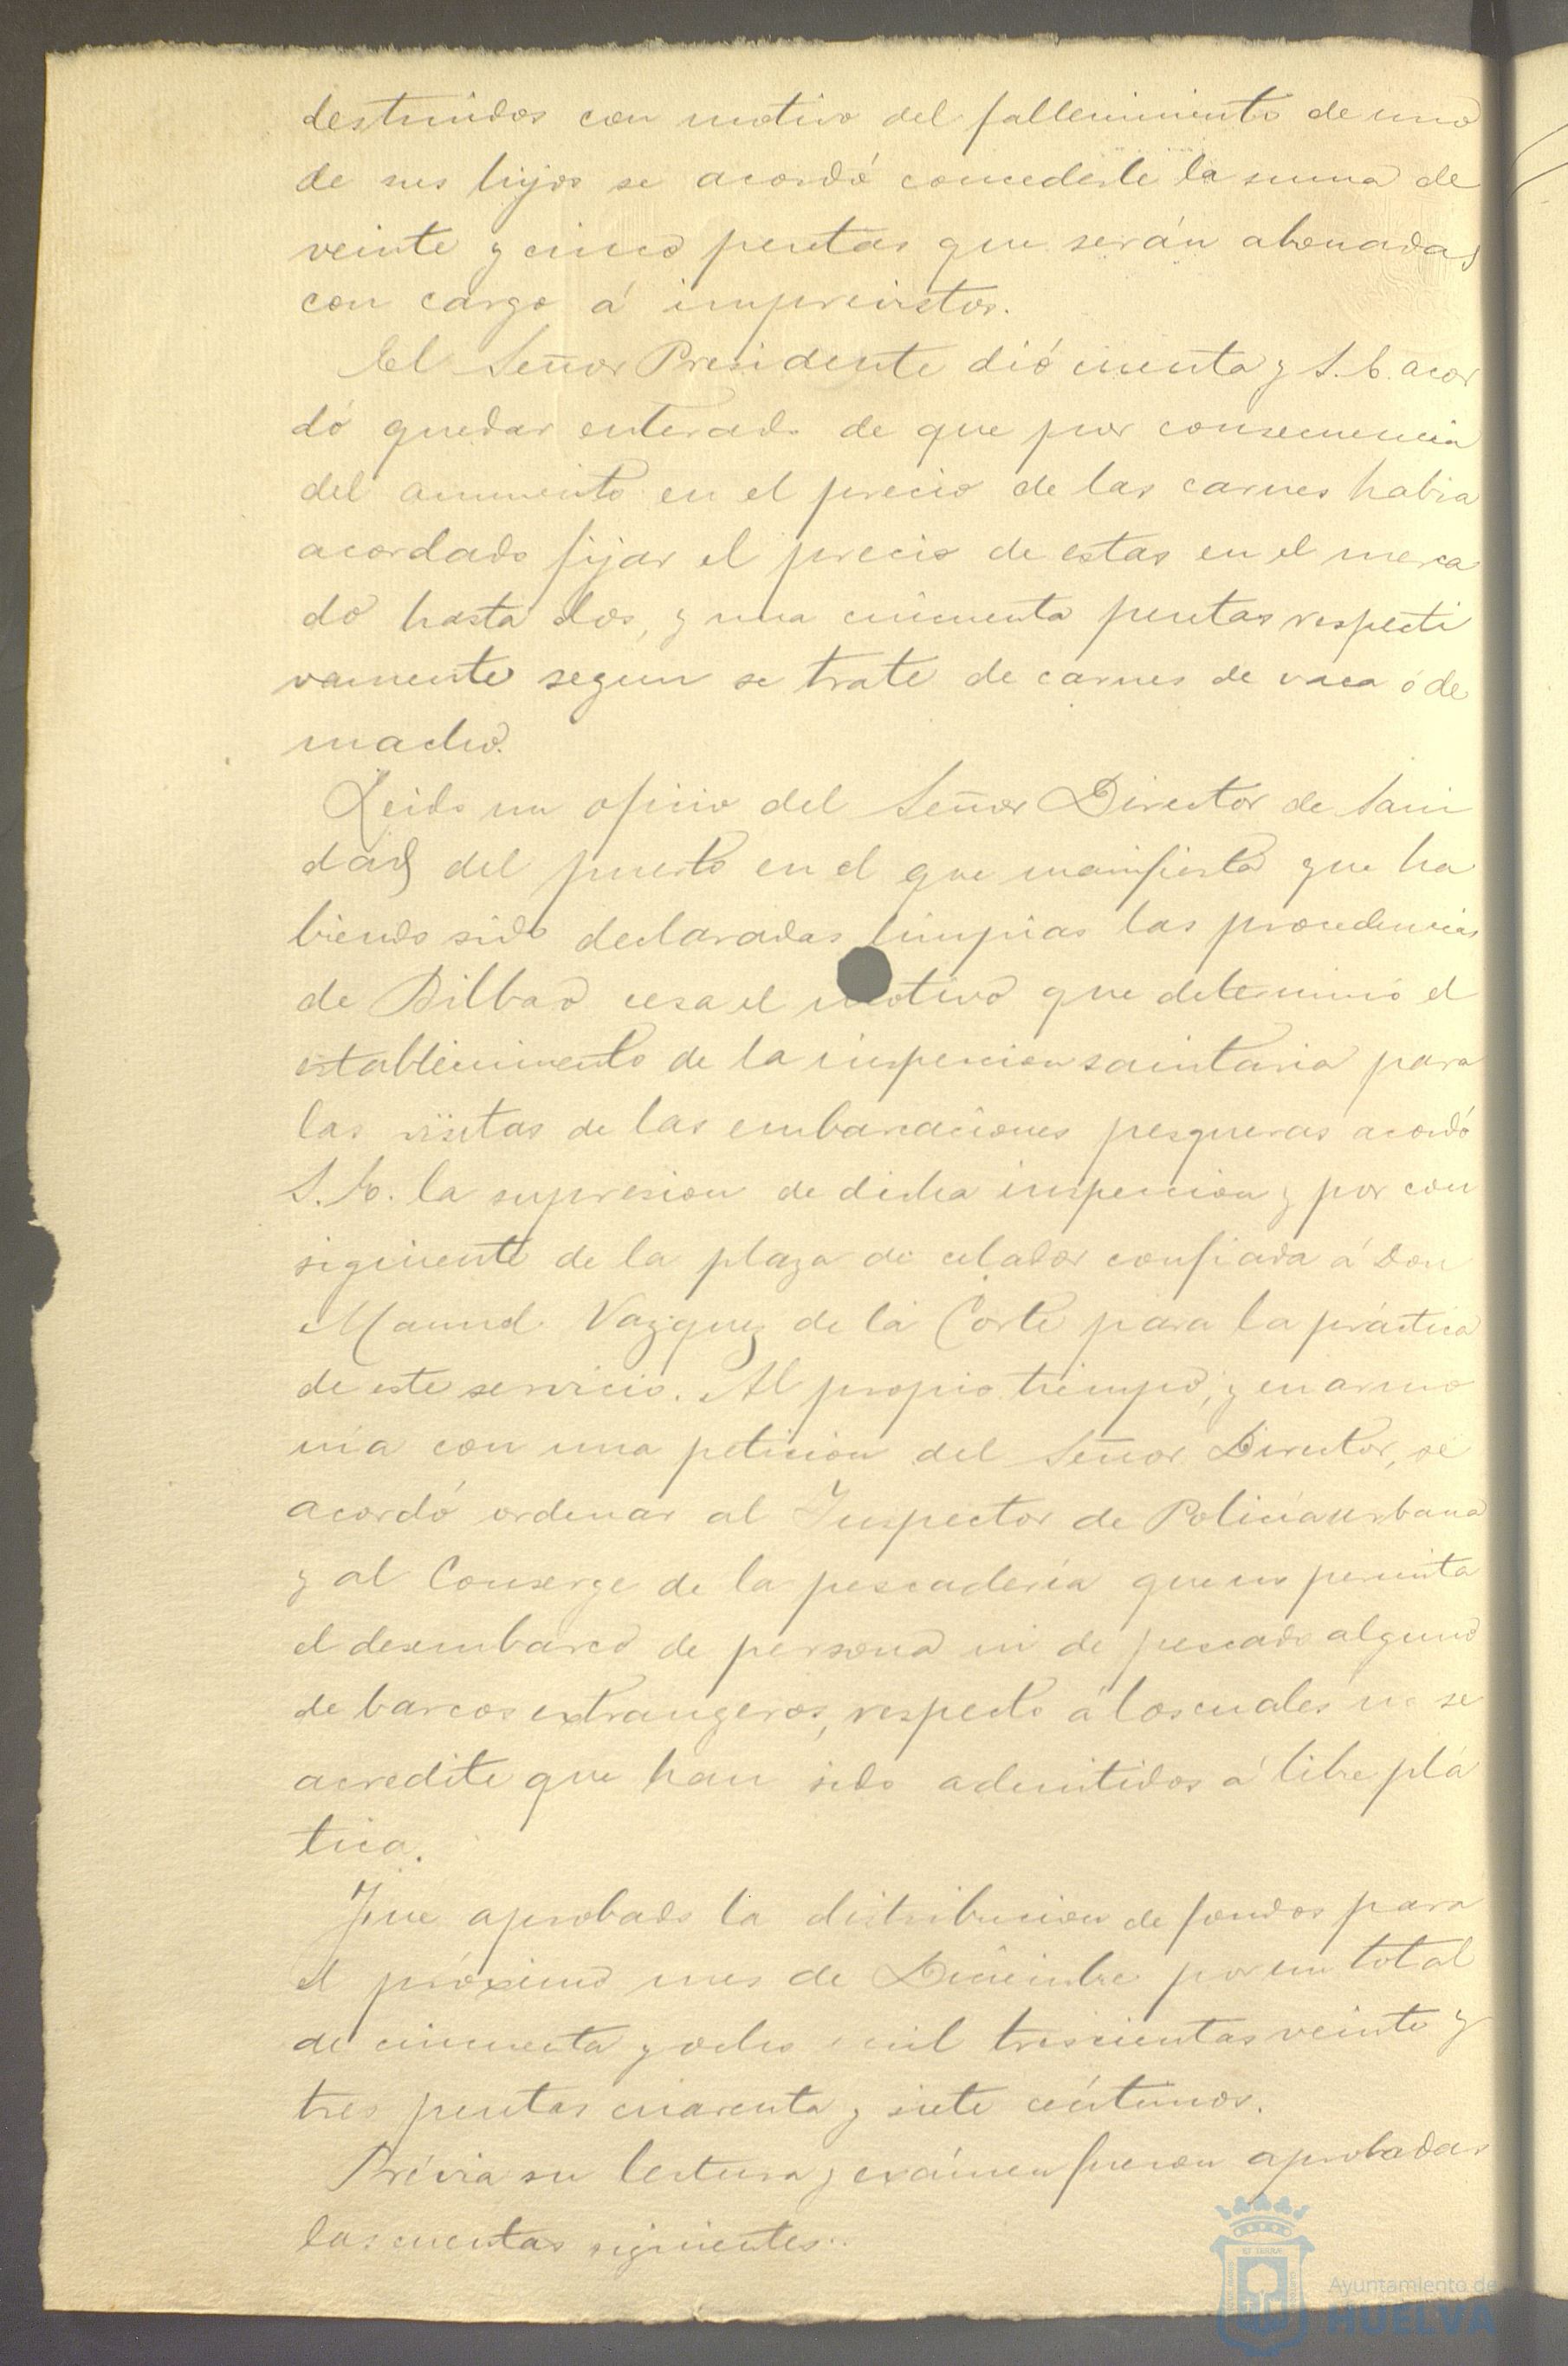 destruidos con motivo del fallecimiento de uno
de sus hijos se acordó concederle la suma de
veinte y cinco pesetas que serán abonadas
con cargo á imprevistos.
El Señor Presidente dió cuenta y S. E. acor
dó quedar enterado de que por consecuencia
del aumento en el precio de las carnes habia
acordado fijar el precio de estas en el merca
do hasta dos, y una cincuenta pesetas respecti
vamente segun se trate de carnes de vaca ó de
macho.
Leido un oficio del Señor Director de Sani
dad del puerto en el que manifiesta que ha
biendo sido declaradas limpias las procedencias
de Bilbao cesa el motivo que determinó el
establecimiento de la inspeccion sanitaria para
las visitas de las embarcaciones pesqueras acordó
S. E. la supresion de dicha inspeccion y por con
siguiente de la plaza de celador confiada á Don
Manuel Vazquez de la Corte para la práctica
de este servicio. Al propio tiempo, y en armo
nia con una peticion del Señor Director, se
acordó ordenar al Inspector de Policía urbana
y al Conserge de la pescadería que no permita
el desembarco de persona ni de pescado alguno
de barcos extrangeros, respecto á los cuales no se
acredite que han sido admitidos á libre plá
tica.
Fue aprobado la distribucion de fondos para
el próximo mes de Diciembre por un total
de cincuenta y ocho mil trescientas veinte y
tres pesetas cuarenta y siete céntimos.
Prévia su lectura y exámen fueron aprobadas
las cuentas siguientes:
Ayuntamiento de
HUELVA